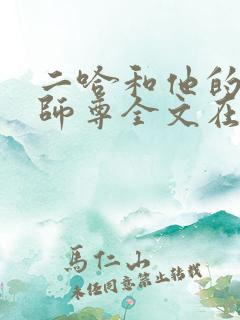 二哈和他的
師尊全文在
馬仁山
未經同意禁止转载